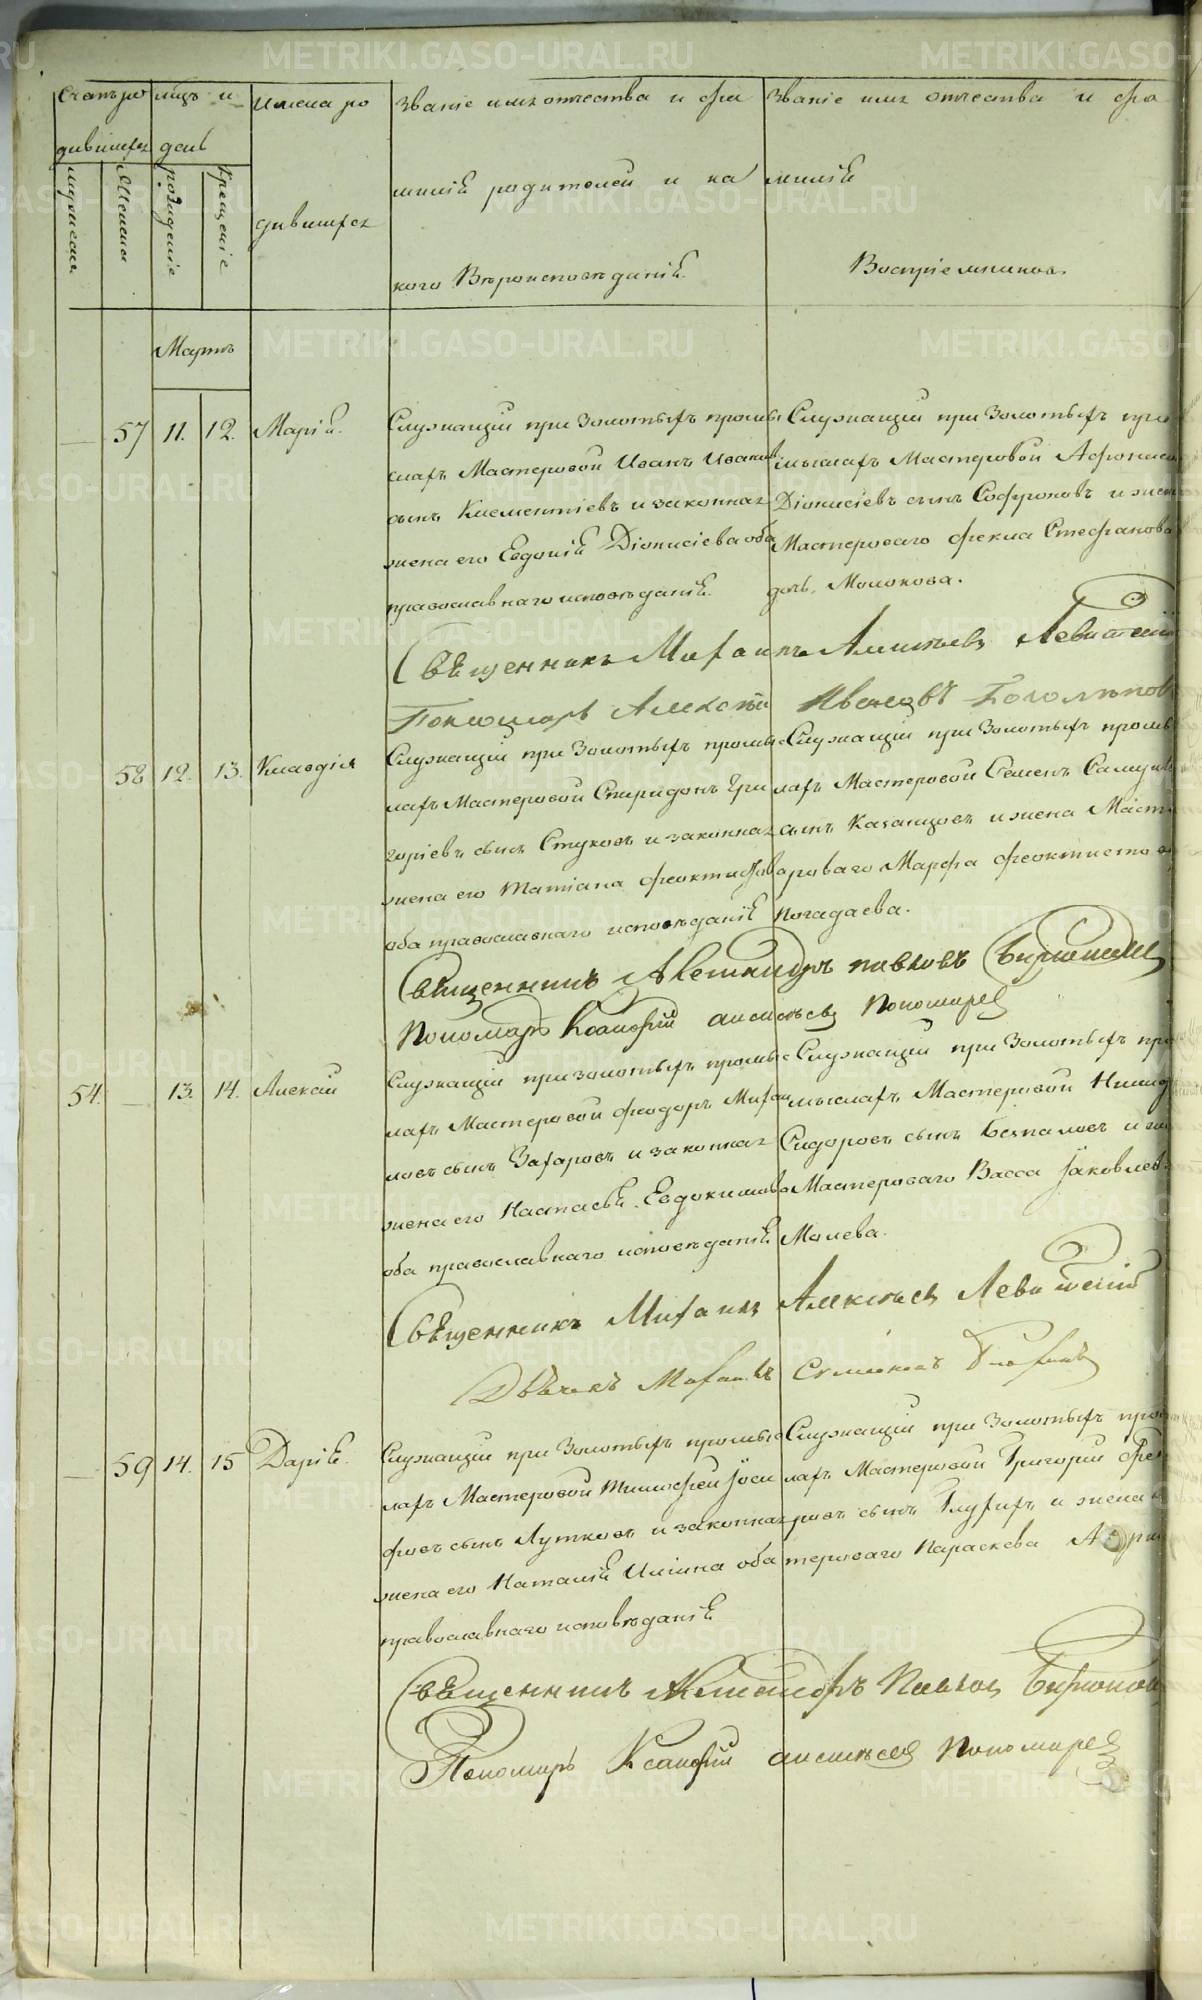 Счетъ ро
дившихся
мужеска
женска
мцъ и
день
рожденіе
крещеніе
Имена ро
дившихся
Званіе имя отчества и фа
миліи родителей и ка
кого Вѣроисповѣданія.
Званіе имя отчества и фа
миліи
Воспріемниковъ.
Мартъ
57 11. 12. Марія.
Служащій при Золотыхъ промы
слахъ Мастеровой Иванъ Ивановъ
сынъ Клементіевъ и законная
жена его Евдокія Діонисіева оба
православнаго исповѣданія.
Служащій при Золотыхъ про
мыслахъ Мастеровой Афонасій
Діонисіевъ сынъ Софроновъ и жена
Мастероваго Фекла Стефанова
дочь, Молокова.
Священникъ Михаилъ Алексѣевъ Левитскій
Пономарь Алексѣй Ивановъ Боголѣповъ
58 12. 13. Клавдія
Служащій при Золотыхъ промы
слахъ Мастеровой Спиридонъ Гри
горіевъ сынъ Стуковъ и законная
жена его Татіана Феоктистова
оба православнаго исповѣданія
Служащій при Золотыхъ промы
слахъ Мастеровой Семенъ Самуил
сынъ Казанцовъ и жена Масте
роваго Марфа Феоктистова
Погадаева.
Священникъ Александръ Павловъ Бирюковъ
Пономарь Ксанофій Алексѣевъ Пономаревъ
54. 13. 14. Алексій
Служащій при золотыхъ промы
слахъ Мастеровой Феодоръ Михаи
ловъ сынъ Захаровъ и законная
жена его Настасья Евдокимова
оба православнаго исповѣданія
Служащій при Золотыхъ про
мыслахъ Мастеровой
Сидоровъ сынъ Безпаловъ и же
Мастероваго Васса Іаковлева
Молева.
Священникъ Михаилъ Алексѣевъ Левитскій
Дьячекъ Михаилъ
59 14. 15 Дарія.
Служащій при Золотыхъ промы
слахъ Мастеровой Тимофей Іоси
фовъ сынъ Лутковъ и законная
жена его Наталія Ильина оба
православнаго исповѣданія
Служащій при Золотыхъ про
слахъ Мастеровой Григорій Фео
ровъ сынъ Глухихъ и жена
тероваго Параскева
Священникъ Александръ Павловъ Бирюковъ
Пономарь Ксанофій Алексѣевъ Пономаревъ
METRIKI.GASO-URAL.RU